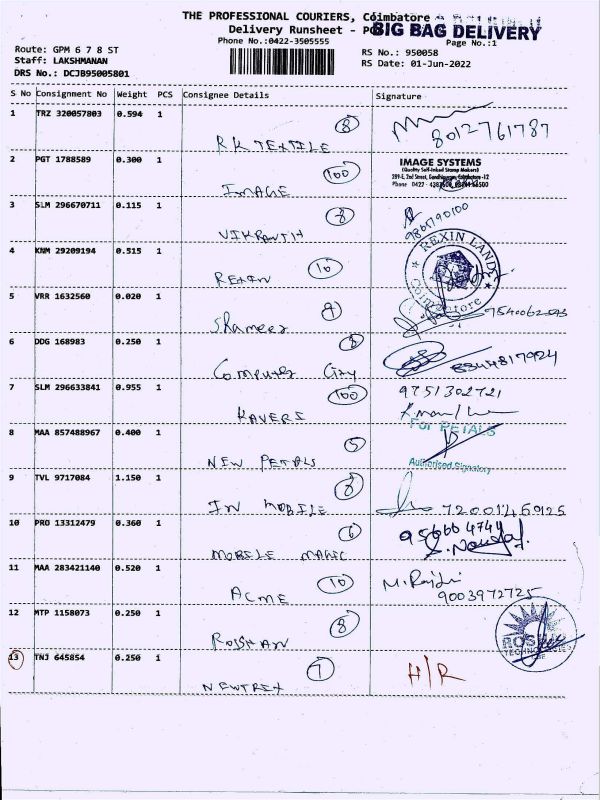 THE PROFESSIONAL COURIERS, Coimbatore
Delivery Runsheet - POD
BIG BAG DELIVERY
Phone No.:0422-3505555
Page No.:1
Route: GPM 6 7 8 ST
Staff: LAKSHMANAN
DRS No.: DCJB95005801
RS No.: 950058
RS Date: 01-Jun-2022
S No Consignment No Weight PCS Consignee Details Signature
1 TRZ 320057803 0.594 1
8
RK TEXTILE
8012761787
2 PGT 1788589 0.300 1
100
IMAGE
IMAGE SYSTEMS
(Quality Self-Inked Stamp Makers)
3 SLM 296670711 0.115 1
8
VIKRANTH
4 KNM 29209194 0.515 1
10
REXIN
REXIN LAND
Coimbatore
5 VRR 1632560 0.020 1
9
Shameer
6 DDG 168983 0.250 1
Computer City
7 SLM 296633841 0.955 1
100
KAVERI
9751302721
8 MAA 857488967 0.400 1
5
NEW PETALS
For PETALS
Authorised Signatory
9 TVL 9717084 1.150 1
8
IN MOBILE
7200146925
10 PRO 13312479 0.360 1
6
MOBILE MAGIC
956664744
11 MAA 283421140 0.520 1
10
ACME
9003972725
12 MTP 1158073 0.250 1
8
ROSHAN
ROSHAN
TECHNOLOGIES
CBE
13 TNJ 645854 0.250 1
7
NEWTREX
H/R